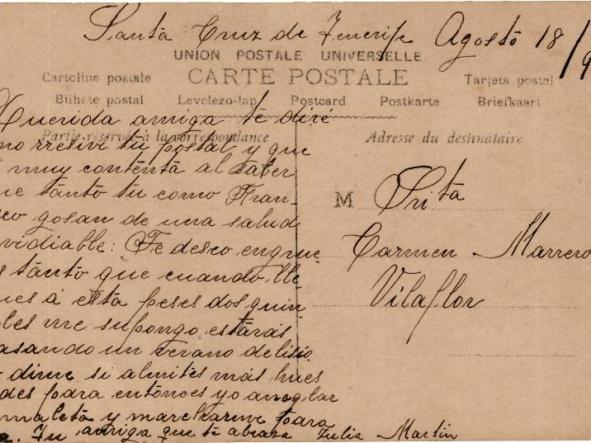 Santa Cruz de Tenerife Agosto 18/9
UNION POSTALE UNIVERSELLE
Cartolina postale CARTE POSTALE Tarjeta postal
Bilhete postal Levelezo-lap Postcard Postkarte Briefkaart
Partie réservée à la correspondance
Adresse du destinataire
Querida amiga te diré
mo rretivi tu postal y que
muy contenta al saber
ue tanto tu como Fran-
co gosan de una salud
vidiable: Te deseo engrue
s tanto que cuando lle
ues á esta peses dos quin
les me supongo estarás
asando un verano delisio
dime si almites más hues
des para entonces yo arreglar
maleta y marcharme para
a. Tu amiga que te abraza Julia Martin
M Srita
Carmen Marrero
Vilaflor